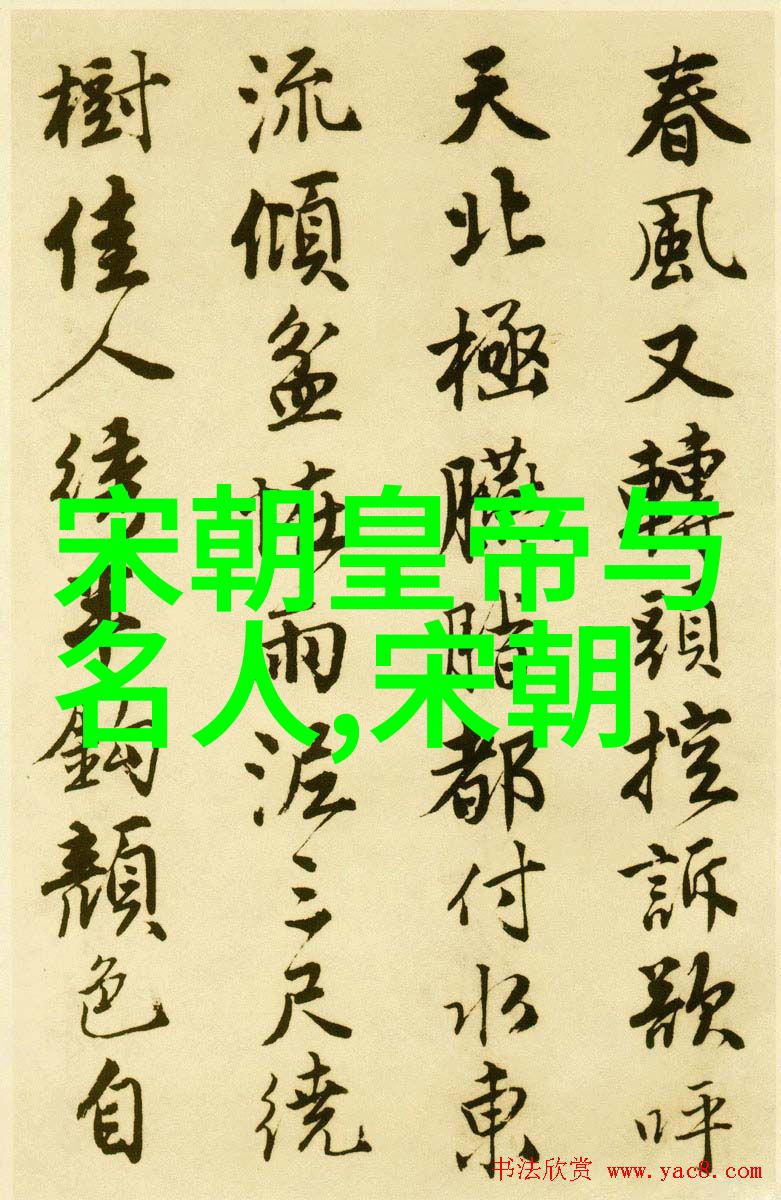 春風又轉頭控訴呼
天北極都付水東
流傾盆怪雨泥三尺繞
樹佳人繡半鈎顏色自
宋朝皇帝与
名人,宋朝
书法欣赏 www.yac8.com